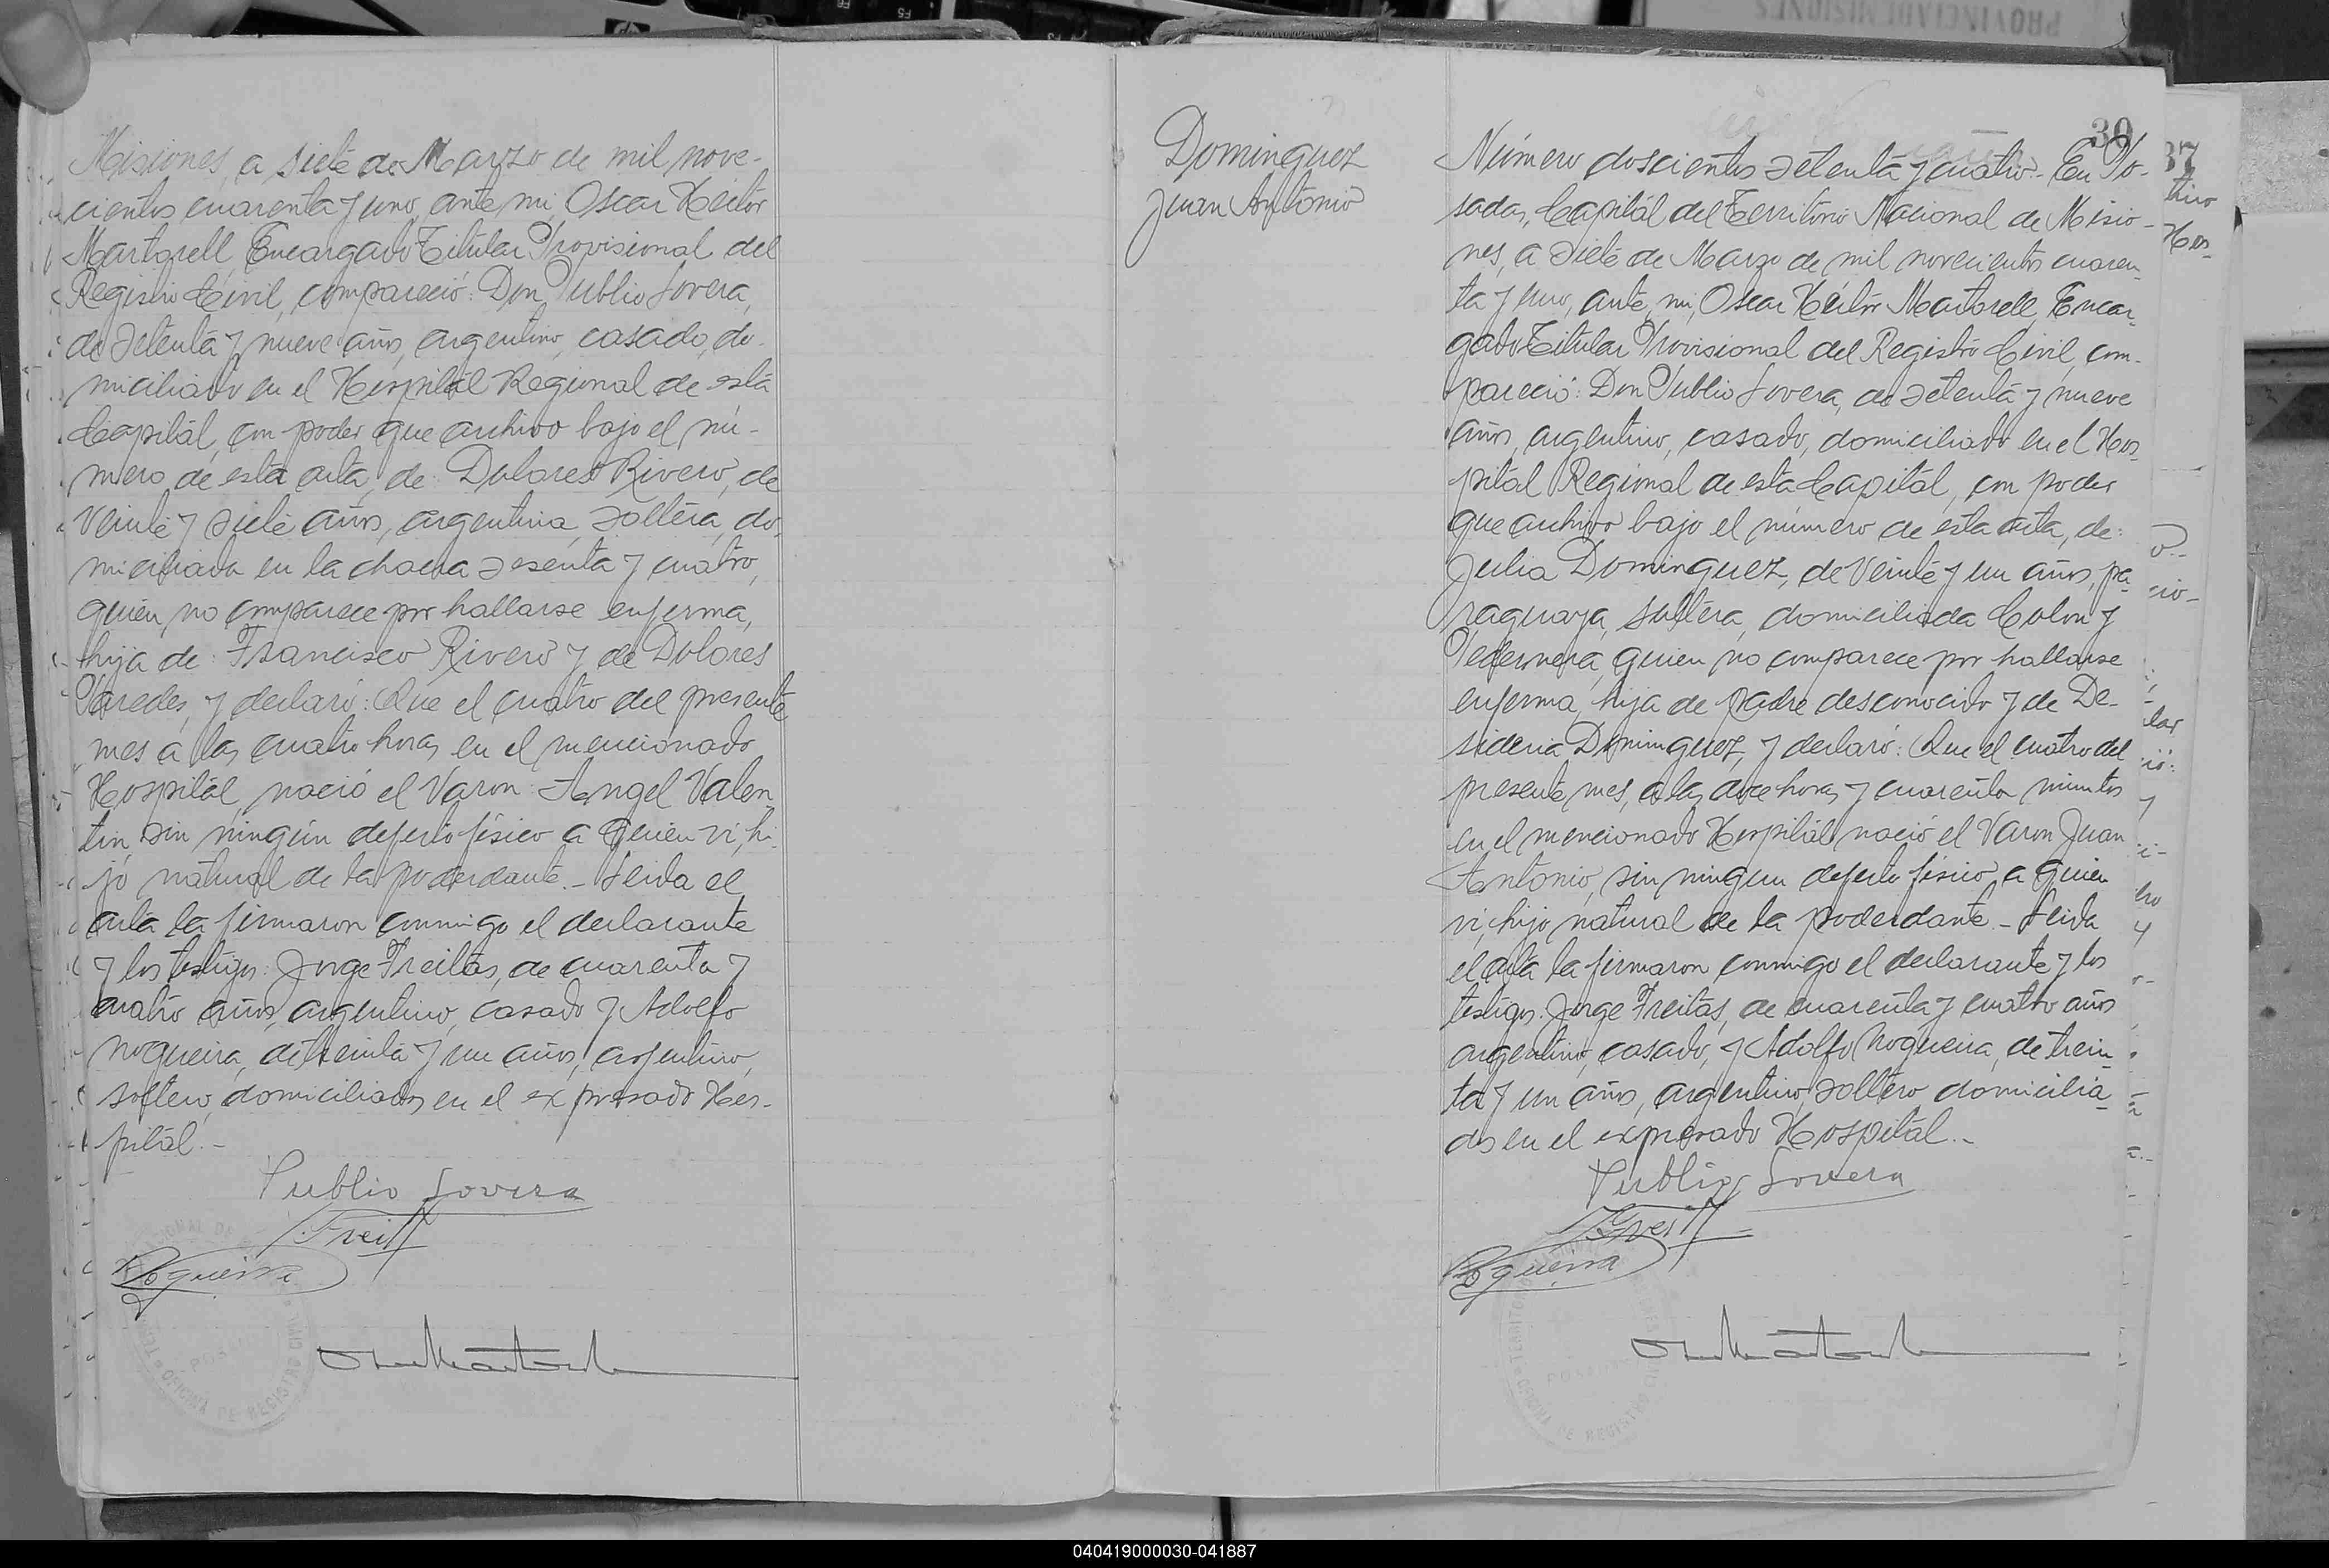 Misiones, a siete de Marzo de mil nove-
cientos cuarenta y uno, ante mi, Oscar Héctor
Martorell, Encargado Titular Provisional del
Registro Civil, compareció: Don Publio Lovera,
de setenta y nueve años, argentino, casado, do-
miciliado en el Hospital Regional de esta
Capital, con poder que archivo bajo el nú-
mero de esta acta, de: Dolores Rivero, de
veinte y siete años, argentina, soltera, do-
miciliada en la chacra sesenta y cuatro,
quien no comparece por hallarse enferma,
hija de: Francisco Rivero y de Dolores
Paredes, y declaró: Que el cuatro del presente
mes a las cuatro horas, en el mencionado
Hospital, nació el Varon: Angel Valen-
tin, sin ningún defecto físico a quien vi, hi-
jo natural de la poderdante.- Leida el
acta la firmaron conmigo el declarante
y los testigos: Jorge Freitas, de cuarenta y
cuatro años, argentino, casado y Adolfo
Nogueira, de treinta y un años, argentino,
soltero, domiciliados en el expresado Hos-
pital.-
Publio Lovera
Freit
Nogueira
OFICINA DE REGISTRO CIVIL
Dominguez
Juan Antonio
30
Número doscientos setenta y cuatro.- En Po-
sadas, Capital del Territorio Nacional de Misio-
nes, a siete de Marzo de mil novecientos cuaren-
ta y uno, ante, mi, Oscar Héctor Martorell, Encar-
gado Titular Provisional del Registro Civil, com-
pareció: Don Publio Lovera, de setenta y nueve
años, argentino, casado, domiciliado en el Hos-
pital Regional de esta Capital, con poder
que archivo bajo el número de esta acta, de:
Julia Dominguez, de veinte y un años, pa-
raguaya, soltera, domiciliada Colon y
Pedernera, quien no comparece por hallarse
enferma, hija de padre desconocido y de De-
sideria Dominguez, y declaró: Que el cuatro del
presente mes, a las doce horas y cuarenta minutos
en el mencionado Hospital nació el Varon Juan
Antonio, sin ningun defecto físico, a quien
vi, hijo natural de la poderdante.- Leida
el acta la firmaron conmigo el declarante y los
testigos: Jorge Freitas, de cuarenta y cuatro años
argentino, casado, y Adolfo Nogueira, de trein-
ta y un años, argentino, soltero domicilia-
dos en el expresado Hospital.-
Publio Lovera
Nogueira
37
040419000030-041887